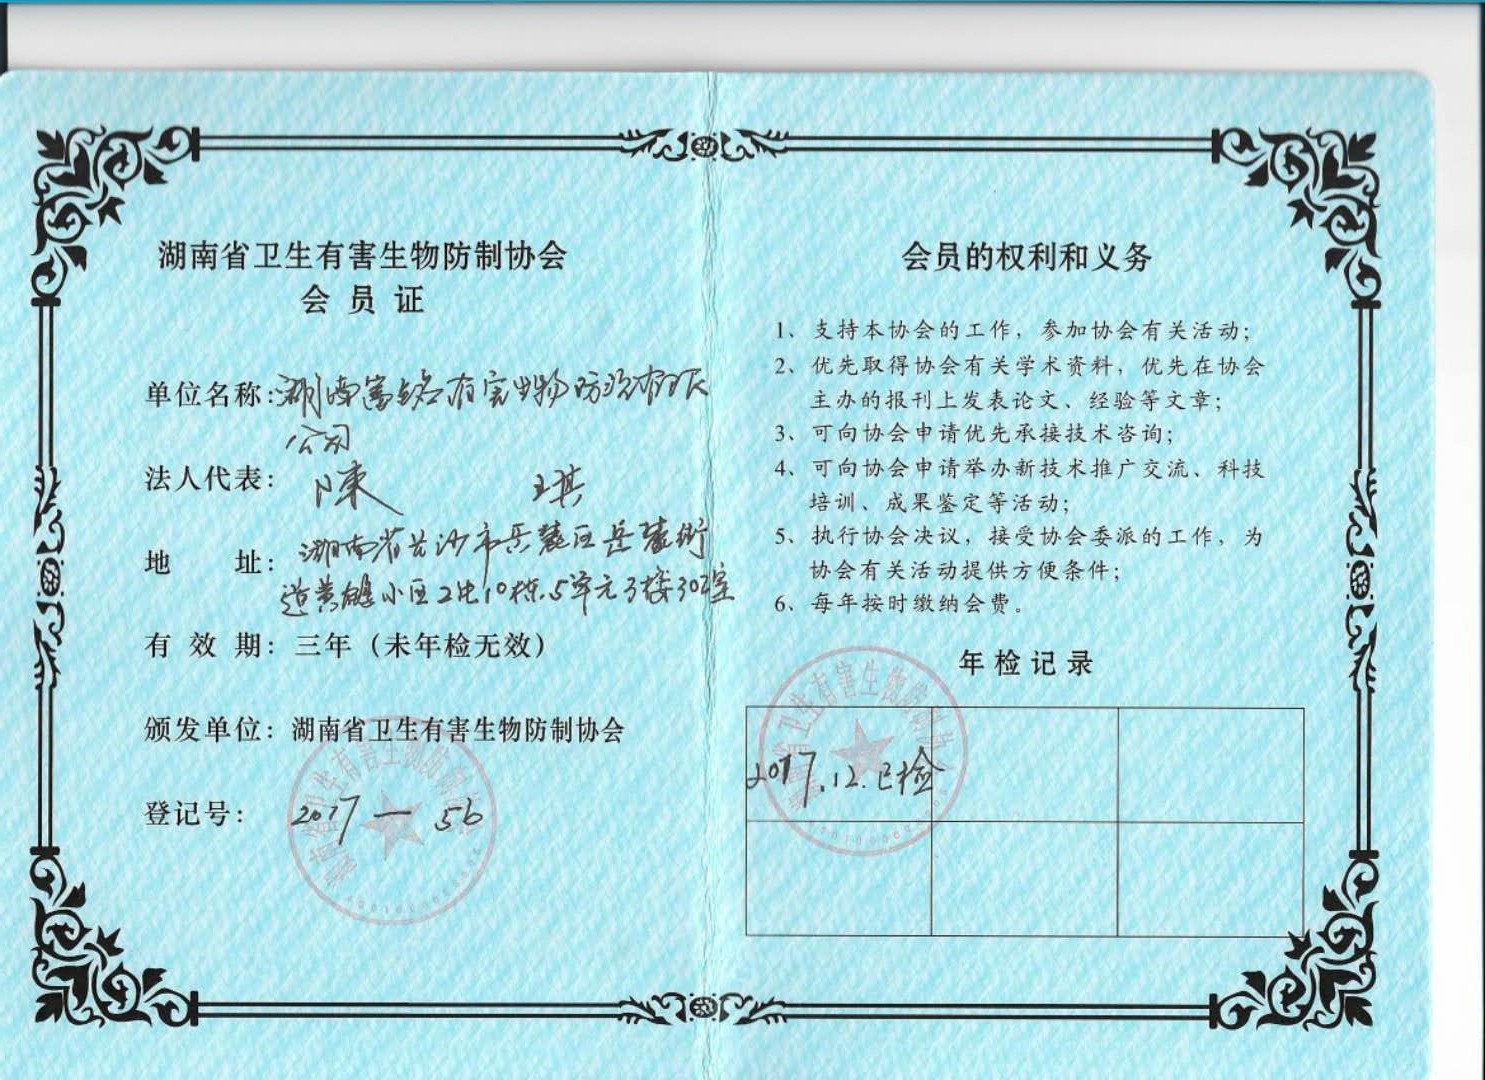 湖南省卫生有害生物防制协会
会员证
单位名称:湖南富铭有害生物防治有限
公司
法人代表: 陳 琪
地 址: 湖南省长沙市岳麓区岳麓街
道黄鹤小区2片10栋5单元3楼302室
有 效 期: 三年(未年检无效)
颁发单位: 湖南省卫生有害生物防制协会
登记号: 2017—56
会员的权利和义务
1、支持本协会的工作,参加协会有关活动;
2、优先取得协会有关学术资料,优先在协会
主办的报刊上发表论文、经验等文章;
3、可向协会申请优先承接技术咨询;
4、可向协会申请举办新技术推广交流、科技
培训、成果鉴定等活动;
5、执行协会决议,接受协会委派的工作,为
协会有关活动提供方便条件;
6、每年按时缴纳会费。
年检记录
2017.12.已检
湖南省卫生有害生物防制协会
湖南省卫生有害生物防制协会